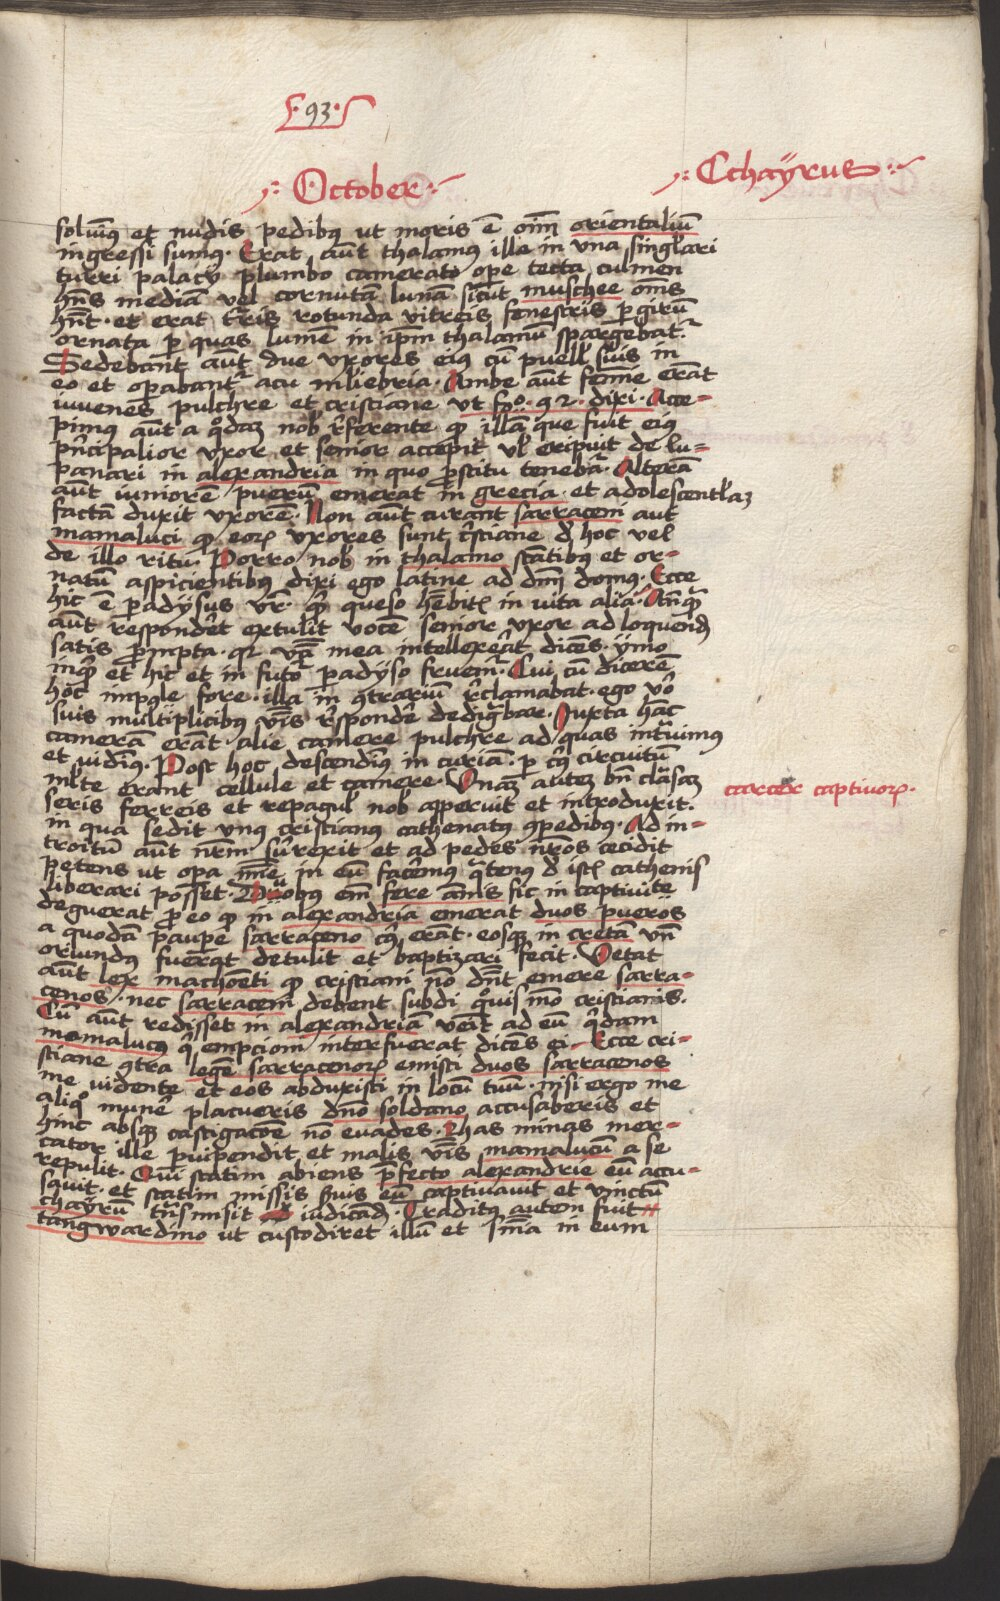 93
October
Cchayrus
soluim9 et nudis pedib9 ut moris ē oīm orientaliū
ingressi sum9. Erat aūt thalamus ille in vna singl̄ari
turri palacÿ plumbo camerato ope tecta culmen
hn̄s mediā vel cornutā lunā sicut muschee om̄s
hn̄t. et erat t̄ris rotunda vitreis fenestris p girū
ornata p quas lumē in ip̄m thalamū spargebat~.
Sedebant aūt due vxores ei9 cū puell' suis in
eo et opabant~ acu mliebria. Ambe aūt fem̄e erāt
iuvenes pulchre et cristiane ut fo. 92. dixi. Acce-
pim9 aūt a qodaz nob r̄ferente q illā que fuit ei9
pn̄cipalior vxor et senior accepit vl' eripuit de lu=
panari in alexandria in quo pstitu tenebat~. Alterā
aūt iuniorē puerū emerat in grecia et adolescentl'az
factā duxit vxorē. Non aūt curant sarraceni aut
mamaluci q eoꝝ vxores sunt cr̄stiane d hoc vel
de illo ritu. Porro nob in thalamo stātib9 et or-
natū aspicientib9 dixi ego latine ad dn̄m dom9. Ecce
hic ē padÿsus vr̄. q̄ queso hēbit~ in vita alia. Anq̄
aūt respond'et extulit vocē senior vxor ad loquend
satis prompta. qr v̄ba mea intellexerat dicēs. ÿmo
inq̄ et hic et in futō padÿso fruem~. Cui cū dicerē
hoc impōle fore. illa in 9trariū r̄clamabat. ego vō
suis multiplicib9 v̄bis r̄spondē dedignabar. Juxta hāc
camerā erāt alie camere pulchre ad quas intᵃuimus
et vidim9. Post hoc descendim9 in curiā. p c9 circuitū
ml'te erant cellule et camere. Vnaz autez bn̄ clausaz
seris ferreis et repagul' nob apperuit et introduxit.
in qua sedit vn9 cristian9 cathenat9 9pedib9. Ad in-
troitū aūt nr̄m surrexit et ad pedes nr̄os cecidit
petens ut opa mīe in eū facem9 q̄ten9 d ist~ cathenis
liberari posset. Duob9 em̄ fere annis sic in captiuite
deguerat p eo q in alexandria emerat duos pueros
a quodā paupe sarraceno c9 erāt. eosq in cretā vn̄
oriund9 fuerat detulit et baptizari fecit. Vetat
aūt lex machometi q cristiani nō dn̄t emere sarra-
cenos. nec sarraceni debent subdi q̄uis mō cristianis.
Cū aūt redisset in alexandriā veīt ad eū q̄dam
mamaluc9 q̄ empcioni interfuerat dicēs ei. Ecce cri-
stiane 9tra legē sarracenoꝝ emisti duos sarracenos
me vidente et eos abduxisti in locū tuū. nisi ergo me
aliqo munē placueris dn̄o soldano accusaberis et
hinc absq castigacōe nō euades. Has minas mer-
cator ille pvipendit et malis v̄bis mamalucū a se
repulit. Qui statim abiens p̄fecto alexandrie eū accu-
sauit. et statim missis suis eū captiuauit et vinctū
chaÿrū tn̄smisit iudicand. Tradit9 autem fuit
tangwardino ut custodiret illū et sm̄a in eum
carcer captiuoꝝ.